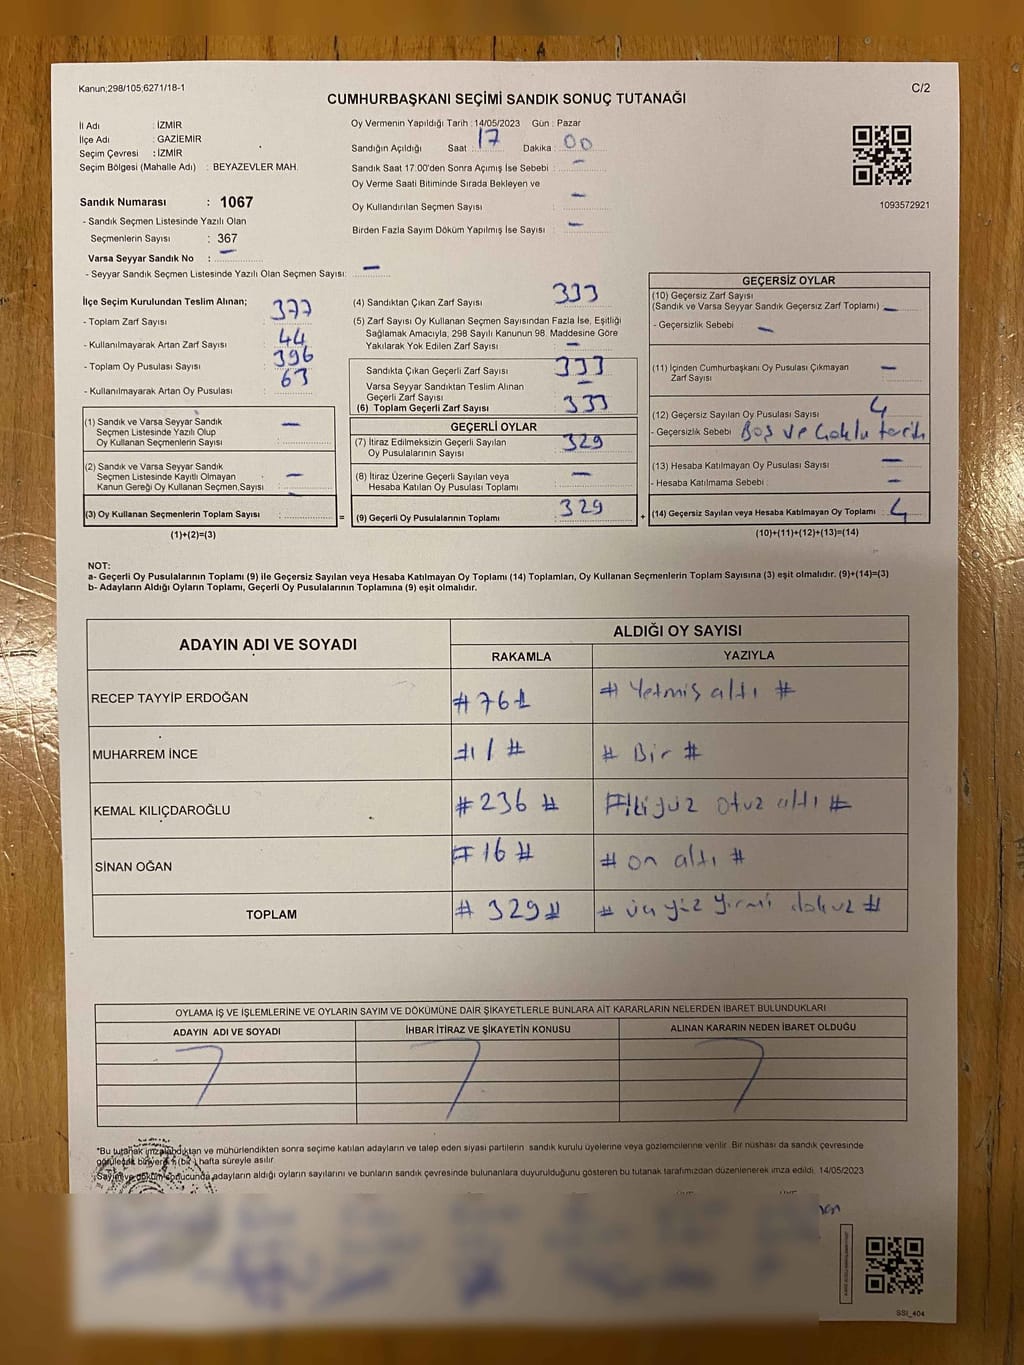 Kanun;298/105,6271/18-1
C/2
CUMHURBAŞKANI SEÇİMİ SANDIK SONUÇ TUTANAĞI
İl Adı : İZMİR
İlçe Adı : GAZİEMİR
Seçim Çevresi : İZMİR
Seçim Bölgesi (Mahalle Adı) : BEYAZEVLER MAH.
Sandık Numarası : 1067
- Sandık Seçmen Listesinde Yazılı Olan
Seçmenlerin Sayısı : 367
Varsa Seyyar Sandık No : –
- Seyyar Sandık Seçmen Listesinde Yazılı Olan Seçmen Sayısı: –
Oy Vermenin Yapıldığı Tarih : 14/05/2023 Gün : Pazar
Sandığın Açıldığı Saat : 17 Dakika : 00
Sandık Saat 17.00'den Sonra Açımış İse Sebebi : –
Oy Verme Saati Bitiminde Sırada Bekleyen ve
Oy Kullandırılan Seçmen Sayısı : –
Birden Fazla Sayım Döküm Yapılmış İse Sayısı : –
1093572921
İlçe Seçim Kurulundan Teslim Alınan;
- Toplam Zarf Sayısı : 377
- Kullanılmayarak Artan Zarf Sayısı : 44
- Toplam Oy Pusulası Sayısı : 396
- Kullanılmayarak Artan Oy Pusulası : 63
(1) Sandık ve Varsa Seyyar Sandık
Seçmen Listesinde Yazılı Olup
Oy Kullanan Seçmenlerin Sayısı : –
(2) Sandık ve Varsa Seyyar Sandık
Seçmen Listesinde Kayıtlı Olmayan
Kanun Gereği Oy Kullanan Seçmen Sayısı : –
(3) Oy Kullanan Seçmenlerin Toplam Sayısı :
(1)+(2)=(3)
(4) Sandıktan Çıkan Zarf Sayısı : 333
(5) Zarf Sayısı Oy Kullanan Seçmen Sayısından Fazla İse, Eşitliği
Sağlamak Amacıyla, 298 Sayılı Kanunun 98. Maddesine Göre
Yakılarak Yok Edilen Zarf Sayısı : –
Sandıkta Çıkan Geçerli Zarf Sayısı : 333
Varsa Seyyar Sandıktan Teslim Alınan
Geçerli Zarf Sayısı : –
(6) Toplam Geçerli Zarf Sayısı : 333
GEÇERLİ OYLAR
(7) İtiraz Edilmeksizin Geçerli Sayılan
Oy Pusulalarının Sayısı : 329
(8) İtiraz Üzerine Geçerli Sayılan veya
Hesaba Katılan Oy Pusulası Toplamı : –
= (9) Geçerli Oy Pusulalarının Toplamı : 329 +
GEÇERSİZ OYLAR
(10) Geçersiz Zarf Sayısı
(Sandık ve Varsa Seyyar Sandık Geçersiz Zarf Toplamı) –
- Geçersizlik Sebebi : –
(11) İçinden Cumhurbaşkanı Oy Pusulası Çıkmayan
Zarf Sayısı : –
(12) Geçersiz Sayılan Oy Pusulası Sayısı : 4
- Geçersizlik Sebebi : Boş ve Çoklu tercih
(13) Hesaba Katılmayan Oy Pusulası Sayısı : –
- Hesaba Katılmama Sebebi : –
(14) Geçersiz Sayılan veya Hesaba Katılmayan Oy Toplamı : 4
(10)+(11)+(12)+(13)=(14)
NOT:
a- Geçerli Oy Pusulalarının Toplamı (9) ile Geçersiz Sayılan veya Hesaba Katılmayan Oy Toplamı (14) Toplamları, Oy Kullanan Seçmenlerin Toplam Sayısına (3) eşit olmalıdır. (9)+(14)=(3)
b- Adayların Aldığı Oyların Toplamı, Geçerli Oy Pusulalarının Toplamına (9) eşit olmalıdır.
ADAYIN ADI VE SOYADI
ALDIĞI OY SAYISI
RAKAMLA YAZIYLA
RECEP TAYYİP ERDOĞAN # 76 # # Yetmiş altı #
MUHARREM İNCE # 1 # # Bir #
KEMAL KILIÇDAROĞLU # 236 # # İkiyüz otuz altı #
SİNAN OĞAN # 16 # # on altı #
TOPLAM # 329 # # üç yüz yirmi dokuz #
OYLAMA İŞ VE İŞLEMLERİNE VE OYLARIN SAYIM VE DÖKÜMÜNE DAİR ŞİKAYETLERLE BUNLARA AİT KARARLARIN NELERDEN İBARET BULUNDUKLARI
ADAYIN ADI VE SOYADI İHBAR İTİRAZ VE ŞİKAYETİN KONUSU ALINAN KARARIN NEDEN İBARET OLDUĞU
*Bu tutanak imzalandıktan ve mühürlendikten sonra seçime katılan adayların ve talep eden siyasi partilerin sandık kurulu üyelerine veya gözlemcilerine verilir. Bir nüshası da sandık çevresinde
görülecek bir yere 1 (bir) hafta süreyle asılır.
Sayım ve döküm sonucunda adayların aldığı oyların sayılarını ve bunların sandık çevresinde bulunanlara duyurulduğunu gösteren bu tutanak tarafımızdan düzenlenerek imza edildi. 14/05/2023
SSI_404